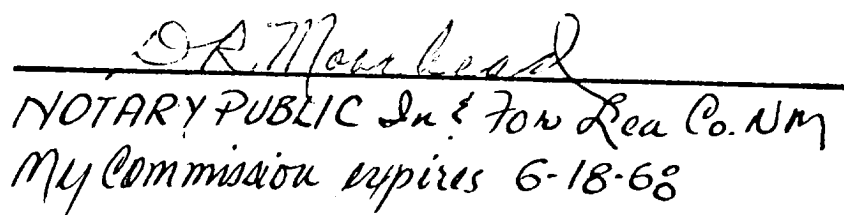 D R Moorhead
NOTARY PUBLIC In & For Lea Co. NM
My Commission expires 6-18-68